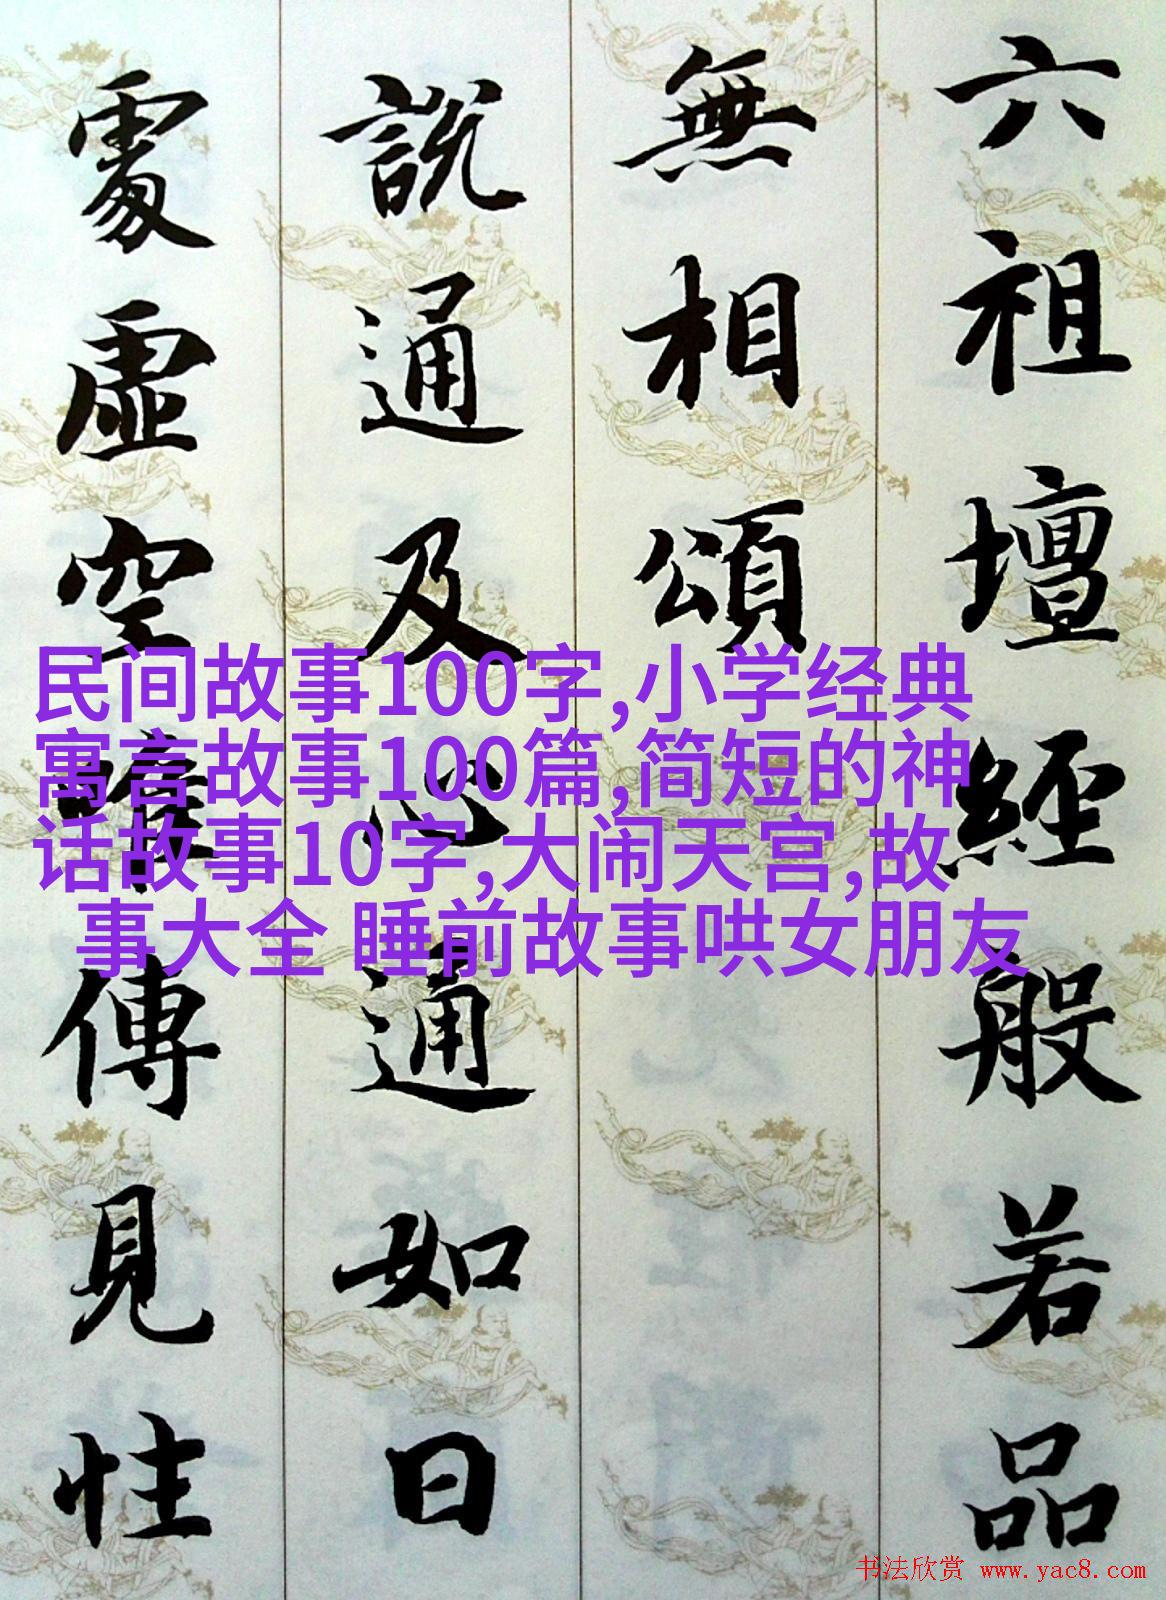 六祖壇經般若品
無相頌
說通及心通如日
處虛空唯傳見性
民间故事100字,小学经典
寓言故事100篇,简短的神
话故事10字,大闹天宫,故
事大全 睡前故事哄女朋友
书法欣赏 www.yac8.com